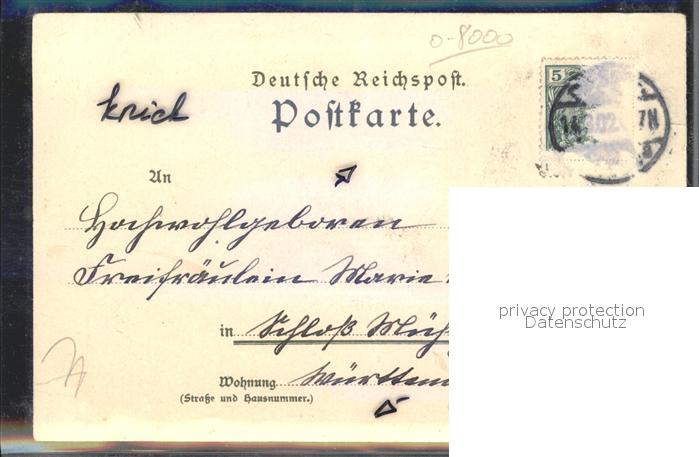 0-8000
Deutsche Reichspost.
Postkarte.
5
02
7N
An
Hochwohlgeboren
Freifräulein Marie
in Schloß
Wohnung Württem
(Straße und Hausnummer.)
privacy protection
Datenschutz